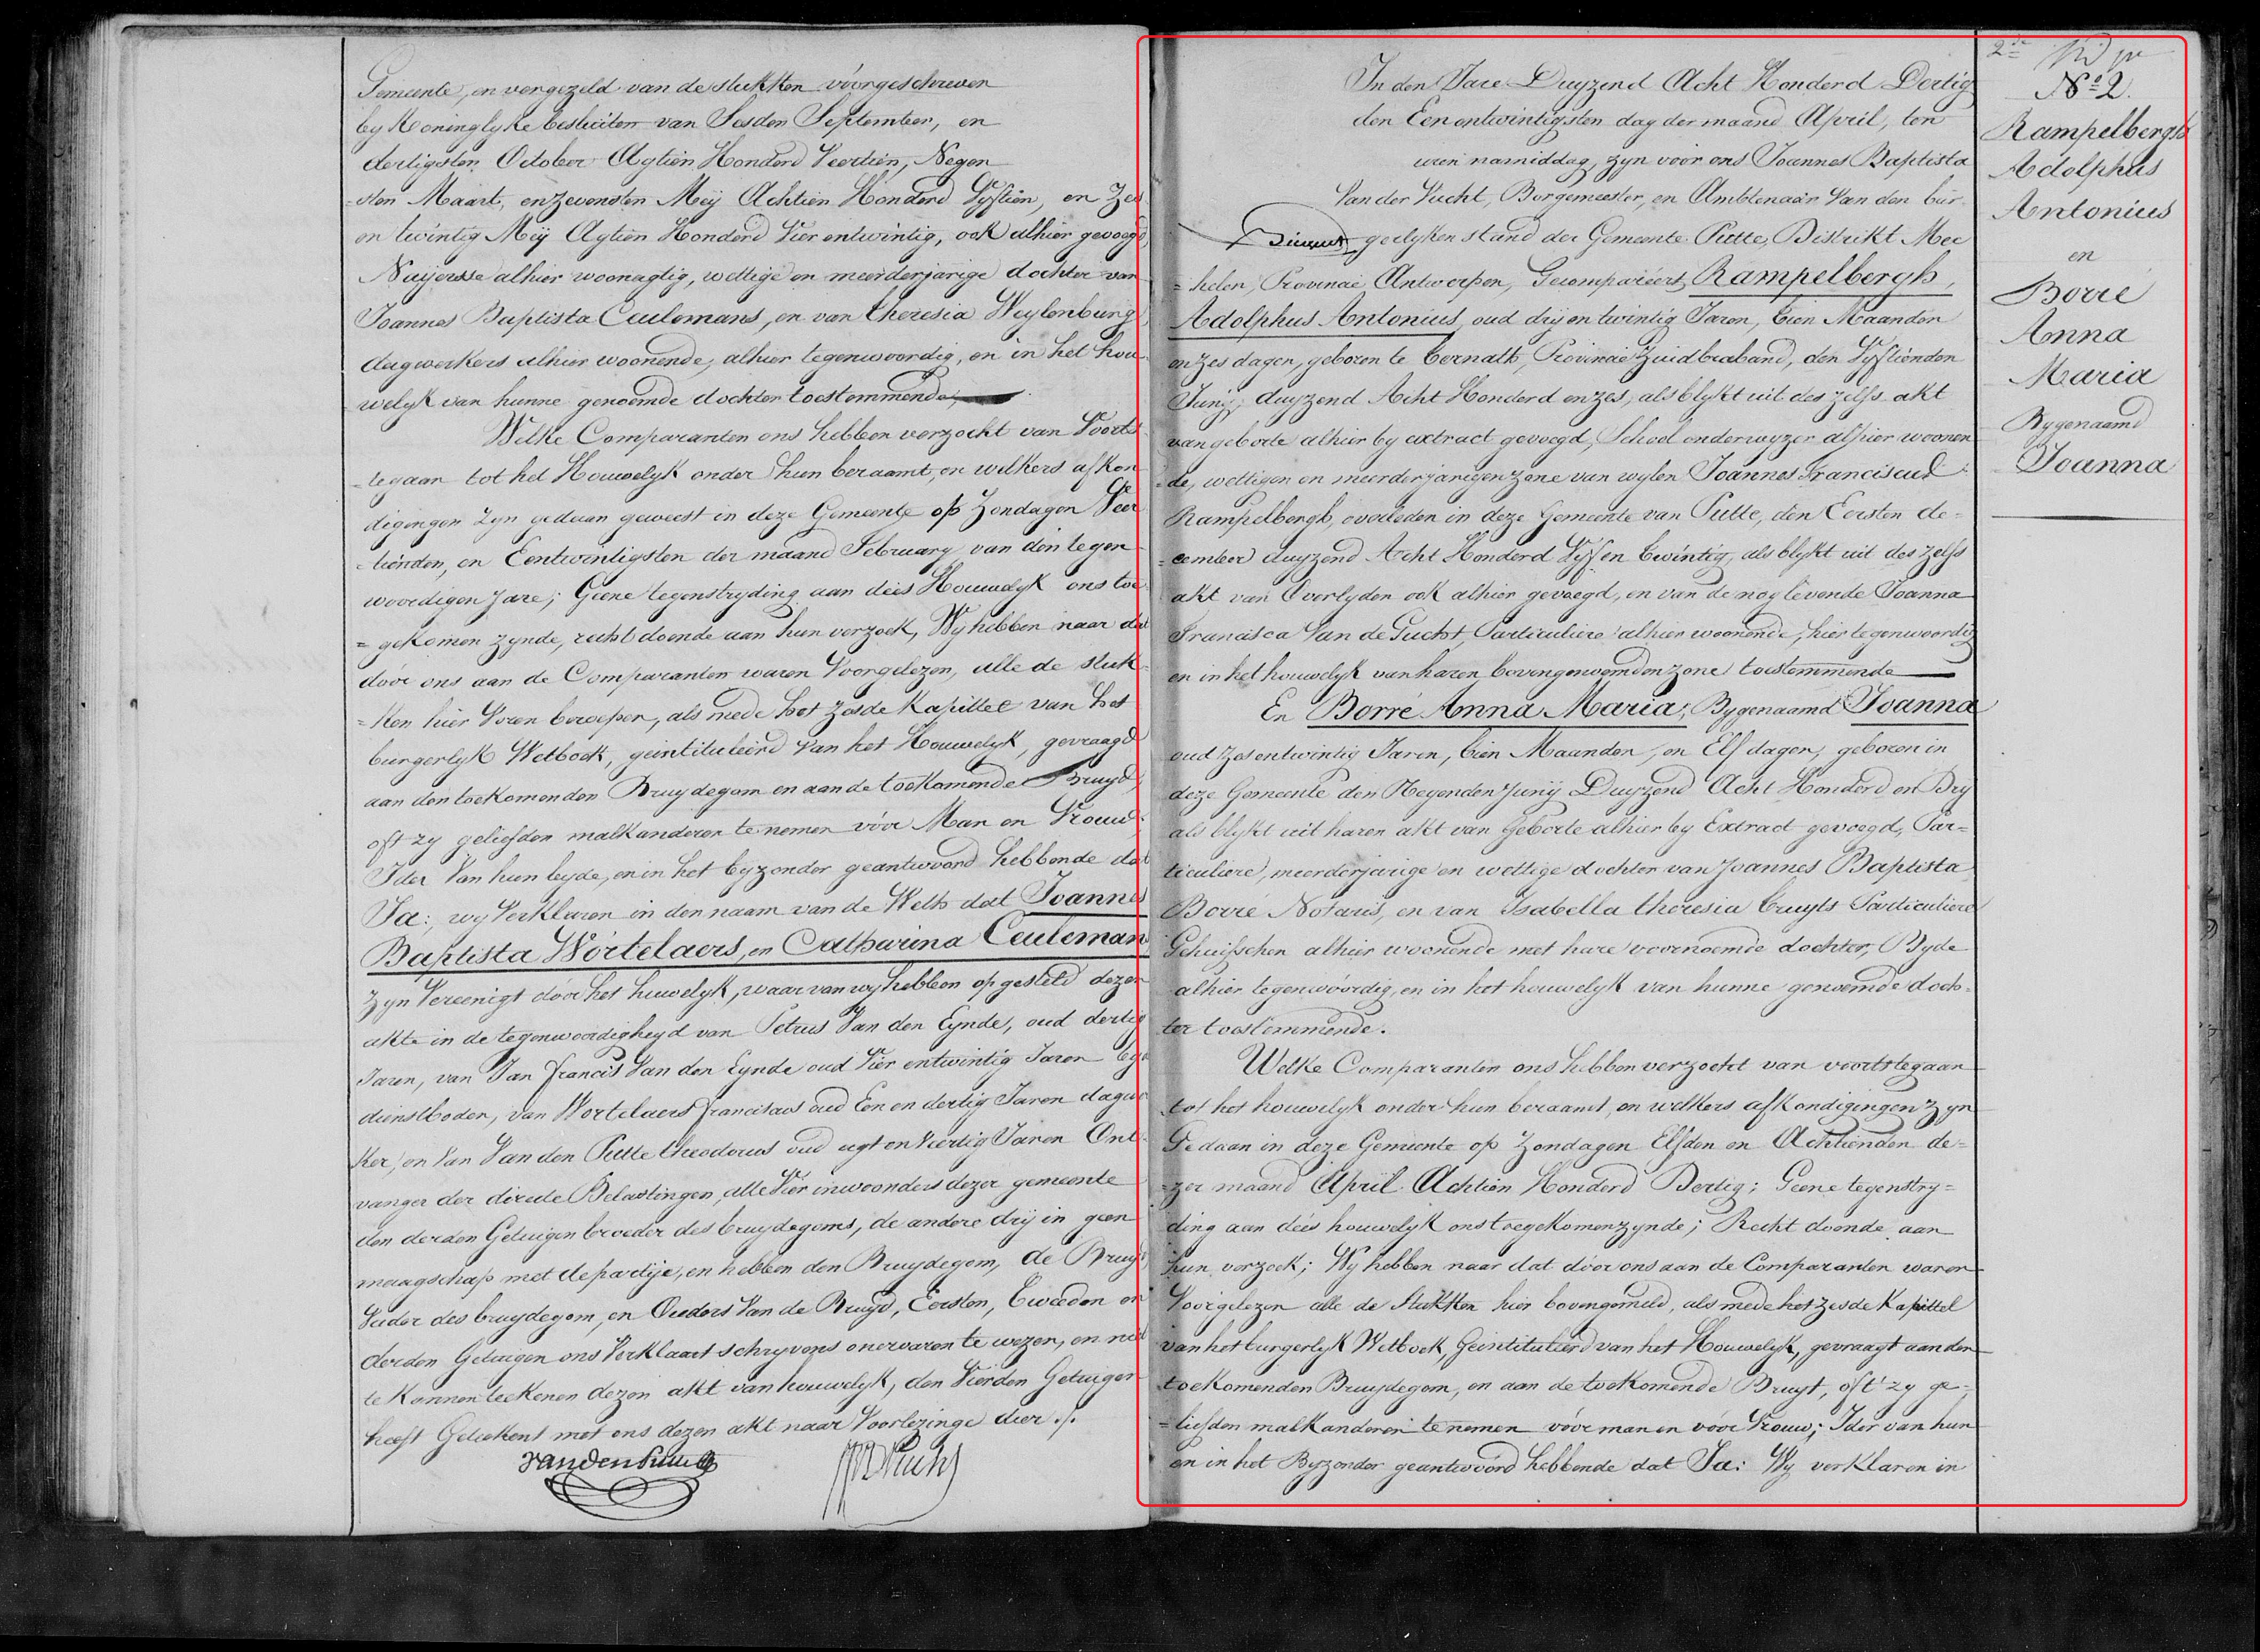 Gemeente, en vergezeld van de stukken vóorgeschreven
by Koninglyke besluiten van Sesden September, en
dertigsten October Agtien Honderd Veertien, Negen
-sten Maart, en zevensten Meÿ Achtien Honderd Vyftien, en Zes
en twintig Meÿ Agtien Honderd Vier entwintig, ook alhier gevoegd,
alhier woonagtig, wettige en meerderjarige dochter van
Joannes Baptista Ceulemans, en van theresia Weylenburg
dagwerkers alhier woonende, alhier tegenwoordig, en in het hou
welyk van hunne genoemde dochter toestemmende,
Welke Comparanten ons hebben verzocht van Voorts
-tegaan tot het Houwelyk onder hun beraamt, en welkers afkon
digingen zyn gedaan geweest in deze Gemeente op Zondagen Veer
-tienden, en Eentwintigsten der maand February van den tegen
woordigen Jare; Geene tegenstryding aan dees Houwelyk ons toe
= gekomen zynde, recht doende aan hun verzoek, Wy hebben naar dat
dóor ons aan de Comparanten waren Voorgelezen, alle de stuk
-ken hier Voren beroepen, als mede het Zesde Kapittel van het
burgerlyk Wetboek, geintituleérd Van het Houwelyk, gevraagd
aan den toekomenden Bruydegom en aan de toekomende Bruyd,
oft zy geliefden malkanderen te nemen vóor Man en Vrouw;
Ider Van hun beyde, en in het byzonder geantwoord hebbende dat
Ja: wy Verklaren in den naam van de Weth dat Joannes
Baptista Wortelaers, en Catharina Ceuleman
Zyn Vereenigt dóor het huwelyk, waar van wy hebben opgesteld dezen
akte in de tegenwoordigheyd van Petrus Van den Eynde, oud dertig
Jaren, van Jan francis Van den Eynde oud Vier entwintig Jaren
dienstboden, van Wortelaers franciscus oud Een en dertig Jaren dagwer
ker, en Van Van den Putte theodorus oud agt en Veertig Jaren Ont
vanger der directe Belastingen, alle Vier inwoonders dezer gemeente
den derden Getuigen broeder des bruydegoms, de andere drij in geen
maagschap met de partije, en hebben den Bruydegom, de Bruyd,
Vader des bruydegom, en Ouders Van de Bruyd, Eersten, Tweeden en
derden Getuigen ons Verklaart schryvens onervaren te wezen, en niet
te konnen teekenen dezen akt van houwelyk, den Vierden Getuigen
heeft Geteekent met ons dezen akt naar Voorlezinge dier ./.
vandenPutte
2de
No 2.
Rampelbergh
Adolphus
Antonius
en
Borré
Anna
Maria
Bygenaamd
Joanna
In den Jare Duyzend Acht Honderd Dertig
den Eenentwintigsten dag der maand April, ten
uren namiddag, zyn voor ons Joannes Baptista
Van der Vucht, Borgemeester, en Ambtenaar Van den bur
gerlyken stand der Gemeente Putte, Distrikt Mec
= helen, Provincie Antwerpen, Gecompareért, Rampelbergh,
Adolphus Antonius, oud drij en twintig Jaren, tien Maanden
en zes dagen, geboren te ternath, Provincie Zuidbraband, den Vyftienden
Junij, duyzend Acht Honderd en zes, als blykt uit des zelfs akt
van geborte alhier by extract gevoegd, School onderwyzer alhier woonen
-de, wettigen en meerderjarigen zone van wylen Joannes Franciscus
Rampelbergh, overleden in deze Gemeente van Putte, den Eersten de=
=cember duyzend Acht Honderd Vyf en twintig, als blykt uit des zelfs
akt van Overlyden ook alhier gevoegd, en van de nog levende Joanna
Francisca Van de Gucht, Particuliere alhier woonende, hier tegenwoordig
en in het houwelyk van haren bovengenoemden zone toestemmende
En Borré Anna Maria, Bygenaamd Joanna
oud zes entwintig Jaren, tien Maanden, en Elf dagen, geboren in
deze Gemeente den Negenden Junij Duyzend Acht Honderd en Drij
als blykt uit haren akt van Geborte alhier by Extract gevoegd, Par=
ticuliere, meerderjarige en wettige dochter van Joannes Baptista
Borré Notaris, en van Isabella theresia Cruyts Particuliere
Gehuisschen alhier woonende met hare voornoemde dochter, Byde
alhier tegenwóordig, en in het houwelyk van hunne genoemde doch=
ter toestemmende.
Welke Comparanten ons hebben verzocht van voorts tegaan
tot het houwelyk onder hun beraamt, en welkers afkondigingen zyn
Gedaan in deze Gemeente op Zondagen Elfden en Achtienden de=
zer maand April Achtien Honderd Dertig; Geene tegenstry=
ding aan deés houwelyk ons toegekomen zynde; Recht doende aan
hun verzoek; Wy hebben naar dat dóor ons aan de Comparanten waren
Voorgelezen alle de Stukken hier bovengemeld, als mede het zesde Kapittel
van het burgerlyk Wetboek, Geintituleerd van het Houwelyk, gevraagt aan den
toekomenden Bruydegom, en aan de toekomende Bruyt, oft zy ge=
= liefden malkanderen te nemen vóor man en vóor Vrouw; Ider van hun
en in het Byzonder geantwoord hebbende dat Ja: Wy verklaren in